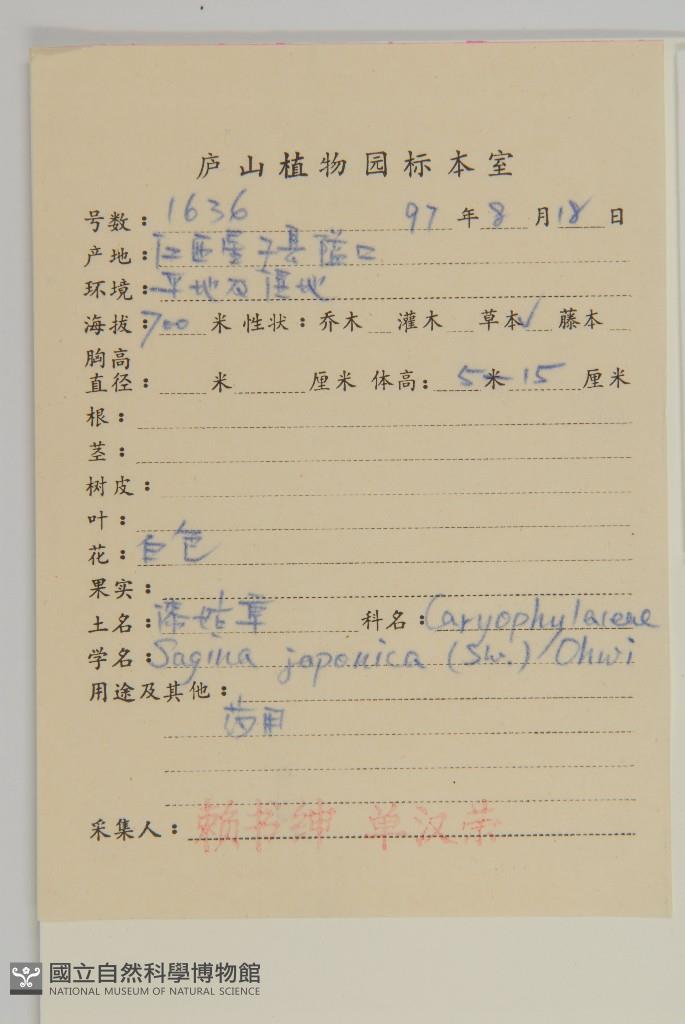 庐山植物园标本室
号数：1636 97年8月18日
产地：江西星子县隘口
环境：平地及湿地
海拔：700米 性状：乔木 灌木 草本✓ 藤本
胸高
直径： 米 厘米 体高：5米15厘米
根：
茎：
树皮：
叶：
花：白色
果实：
土名：漆姑草 科名：Caryophylaceae
学名：Sagina japonica (Sw.) Ohwi
用途及其他：
药用
采集人：赖书绅 单汉荣
國立自然科學博物館
NATIONAL MUSEUM OF NATURAL SCIENCE